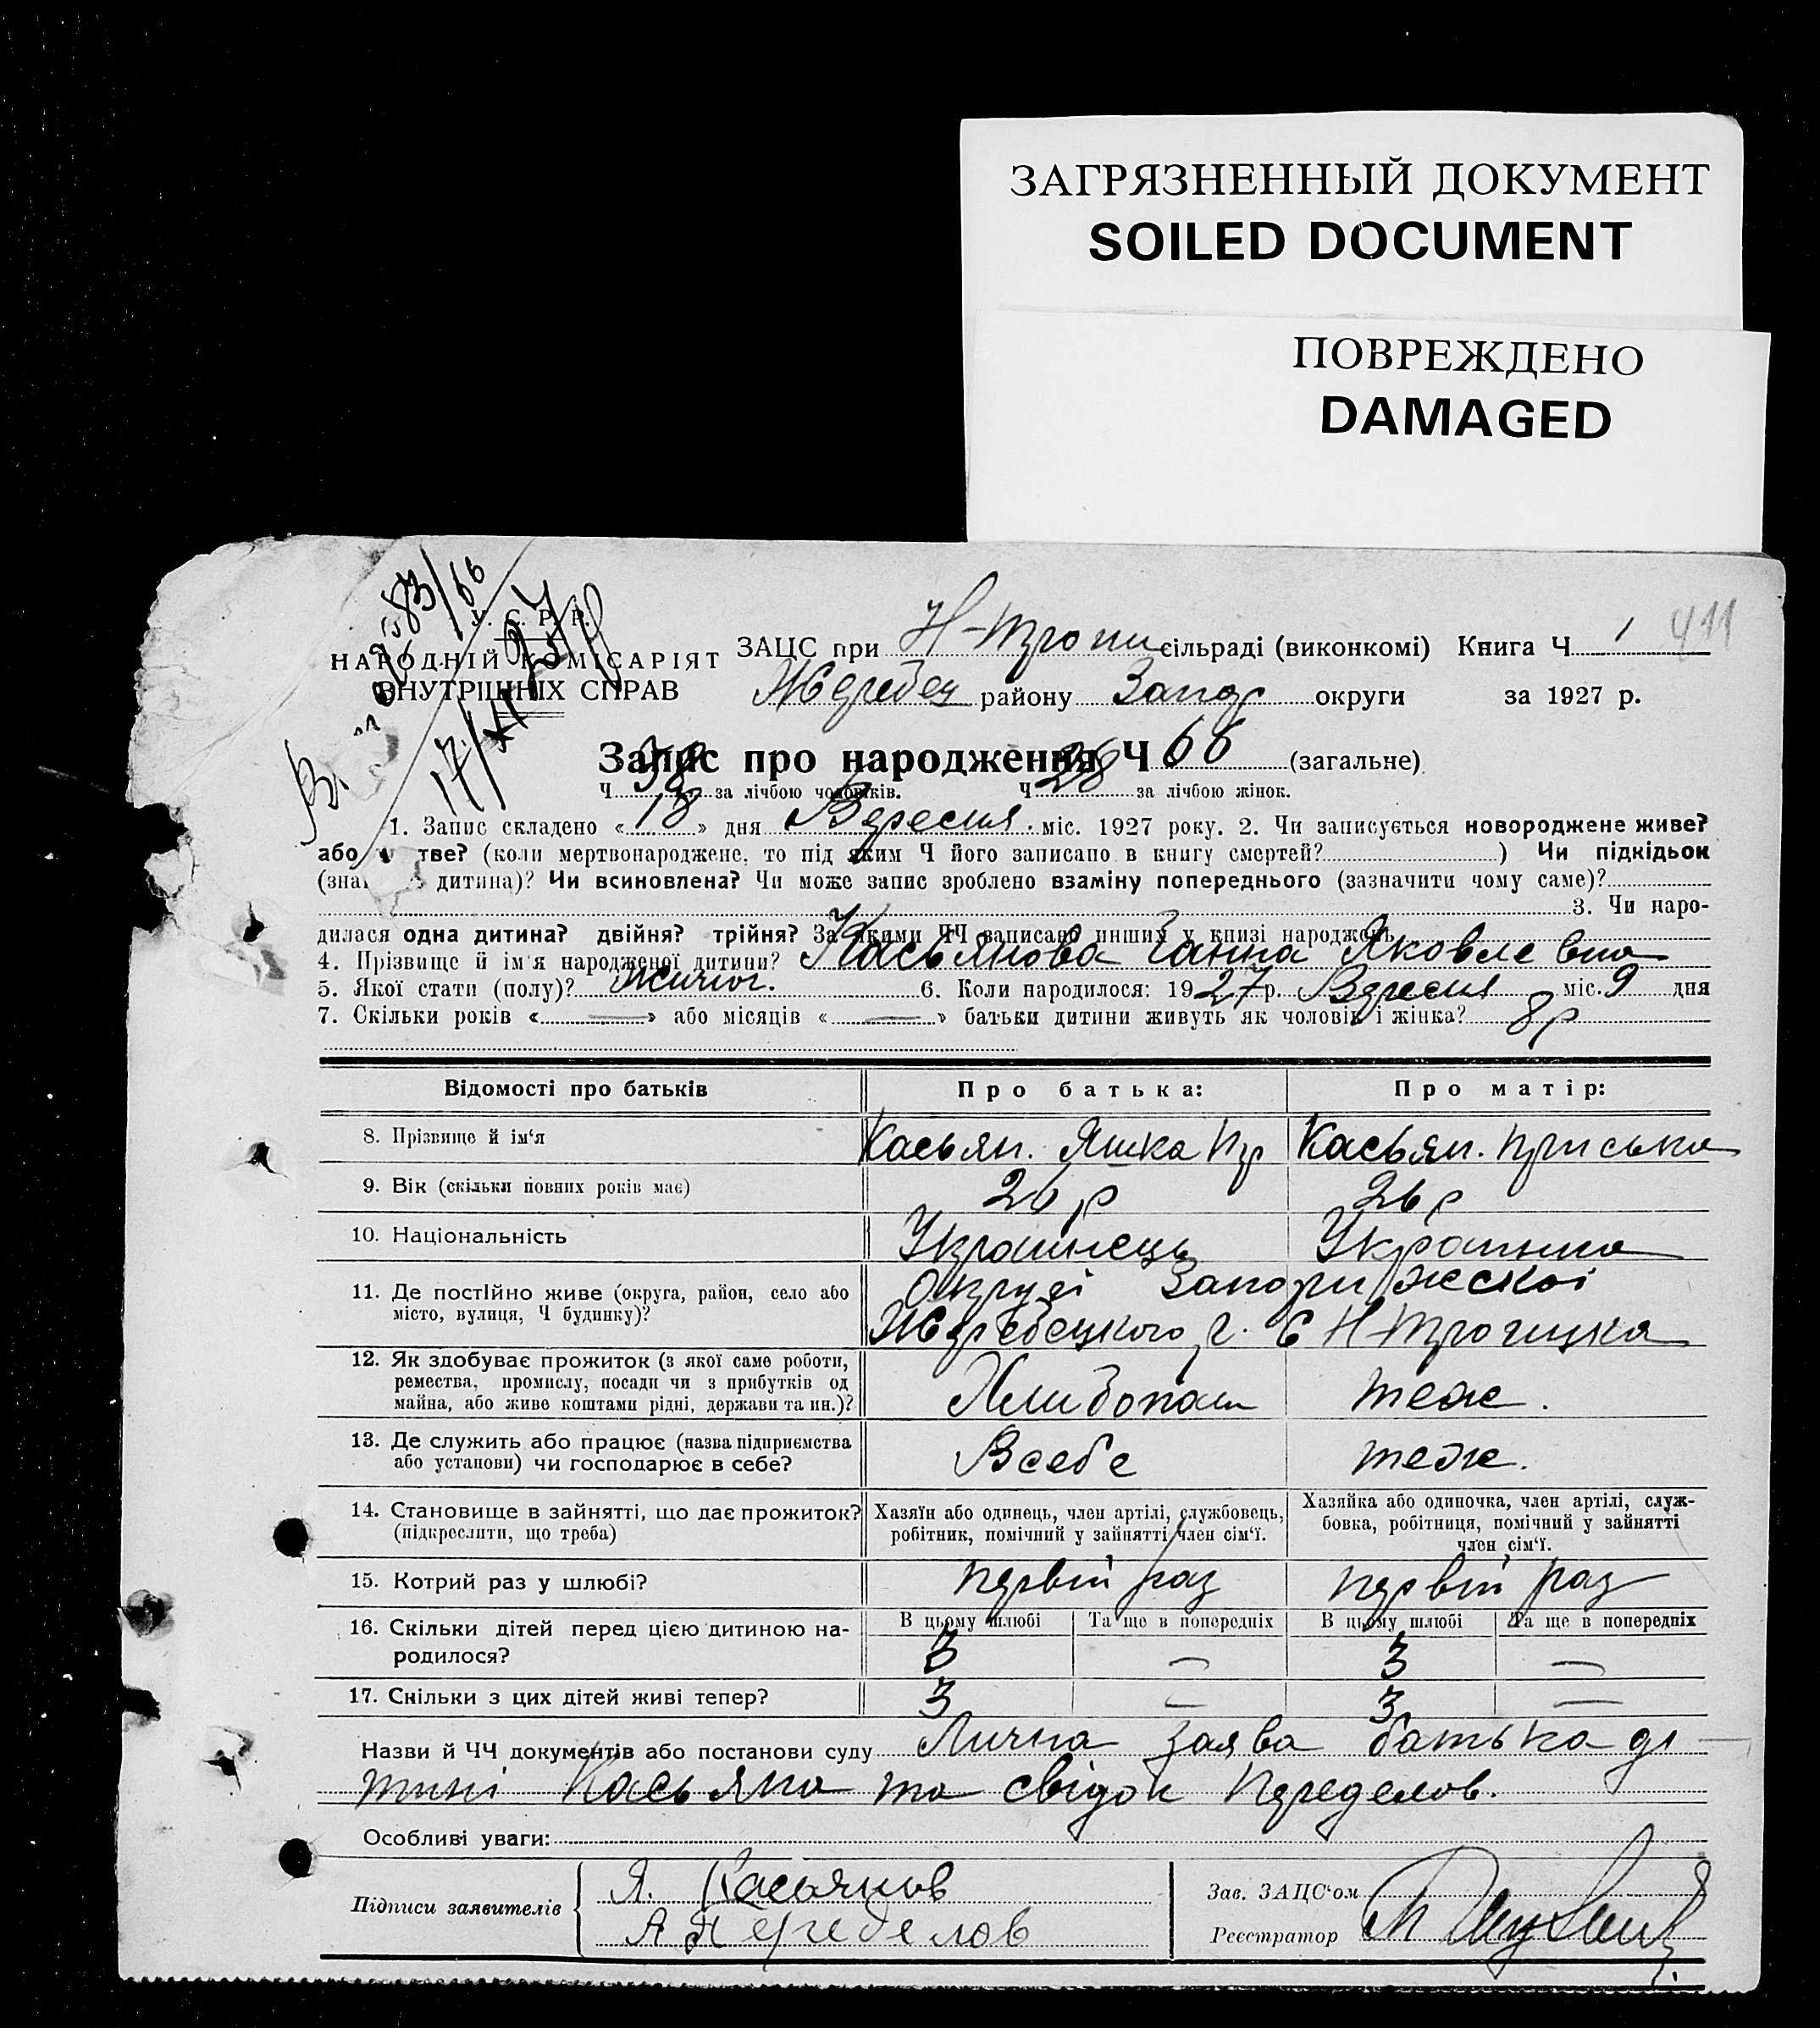 ЗАГРЯЗНЕННЫЙ ДОКУМЕНТ
SOILED DOCUMENT
ПОВРЕЖДЕНО
DAMAGED
411
У. С. Р. Р.
НАРОДНІЙ КОМІСАРІЯТ
ВНУТРІШНІХ СПРАВ
83/66
17/XI
ЗАЦС при Н-Трои сільраді (виконкомі) Книга Ч 1
Жеребец району Запор округи за 1927 р.
Запис про народження Ч 66 (загальне)
Ч 38 за лічбою чоловіків. Ч 28 за лічбою жінок.
1. Запис складено « 18 » дня Вересня міс. 1927 року. 2. Чи записується новороджене живе?
або тве? (коли мертвонароджене, то під яким Ч його записано в книгу смертей? ) Чи підкідьок
(зна дитина)? Чи всиновлена? Чи може запис зроблено взаміну попереднього (зазначити чому саме)?
3. Чи наро-
дилася одна дитина? двійня? трійня? За якими ЧЧ записано инших у книзі народжень
4. Прізвище й ім'я народженої дитини? Касьянова Ганна Яковлевна
5. Якої стати (полу)? Жіноч. 6. Коли народилося: 1927 р. Вересня міс. 9 дня
7. Скільки років « — » або місяців « — » батьки дитини живуть як чоловік і жінка? 8 р
Відомості про батьків Про батька: Про матір:
8. Прізвище й ім'я Касьян. Яшка Пр Касьян. Приська
9. Вік (скільки повних років має) 26 р 26 р
10. Національність Украинець Украинка
11. Де постійно живе (округа, район, село або Округі Запорижскоі
місто, вулиця, Ч будинку)? Жеребецкого р. С Н-Троицка
12. Як здобуває прожиток (з якої саме роботи,
ремества, промислу, посади чи з прибутків од
майна, або живе коштами рідні, держави та ин.)? Хлибопаш теж.
13. Де служить або працює (назва підприємства
або установи) чи господарює в себе? Всебе теж.
14. Становище в зайнятті, що дає прожиток? Хазяїн або одинець, член артілі, службовець, Хазяйка або одиночка, член артілі, служ-
(підкреслити, що треба) робітник, помічний у зайнятті член сім'ї. бовка, робітниця, помічний у зайнятті
член сім'ї.
15. Котрий раз у шлюбі? первій раз первій раз
16. Скільки дітей перед цією дитиною на- В цьому шлюбі Та ще в попередніх В цьому шлюбі Та ще в попередніх
родилося? 3 — 3 —
17. Скільки з цих дітей живі тепер? 3 — 3 —
Назви й ЧЧ документів або постанови суду Лична заява батька ді-
тині Касьяна та свідок Переделов.
Особливі уваги:
Підписи заявителів Я. Касьянов
А Переделов
Зав. ЗАЦС'ом
Реєстратор